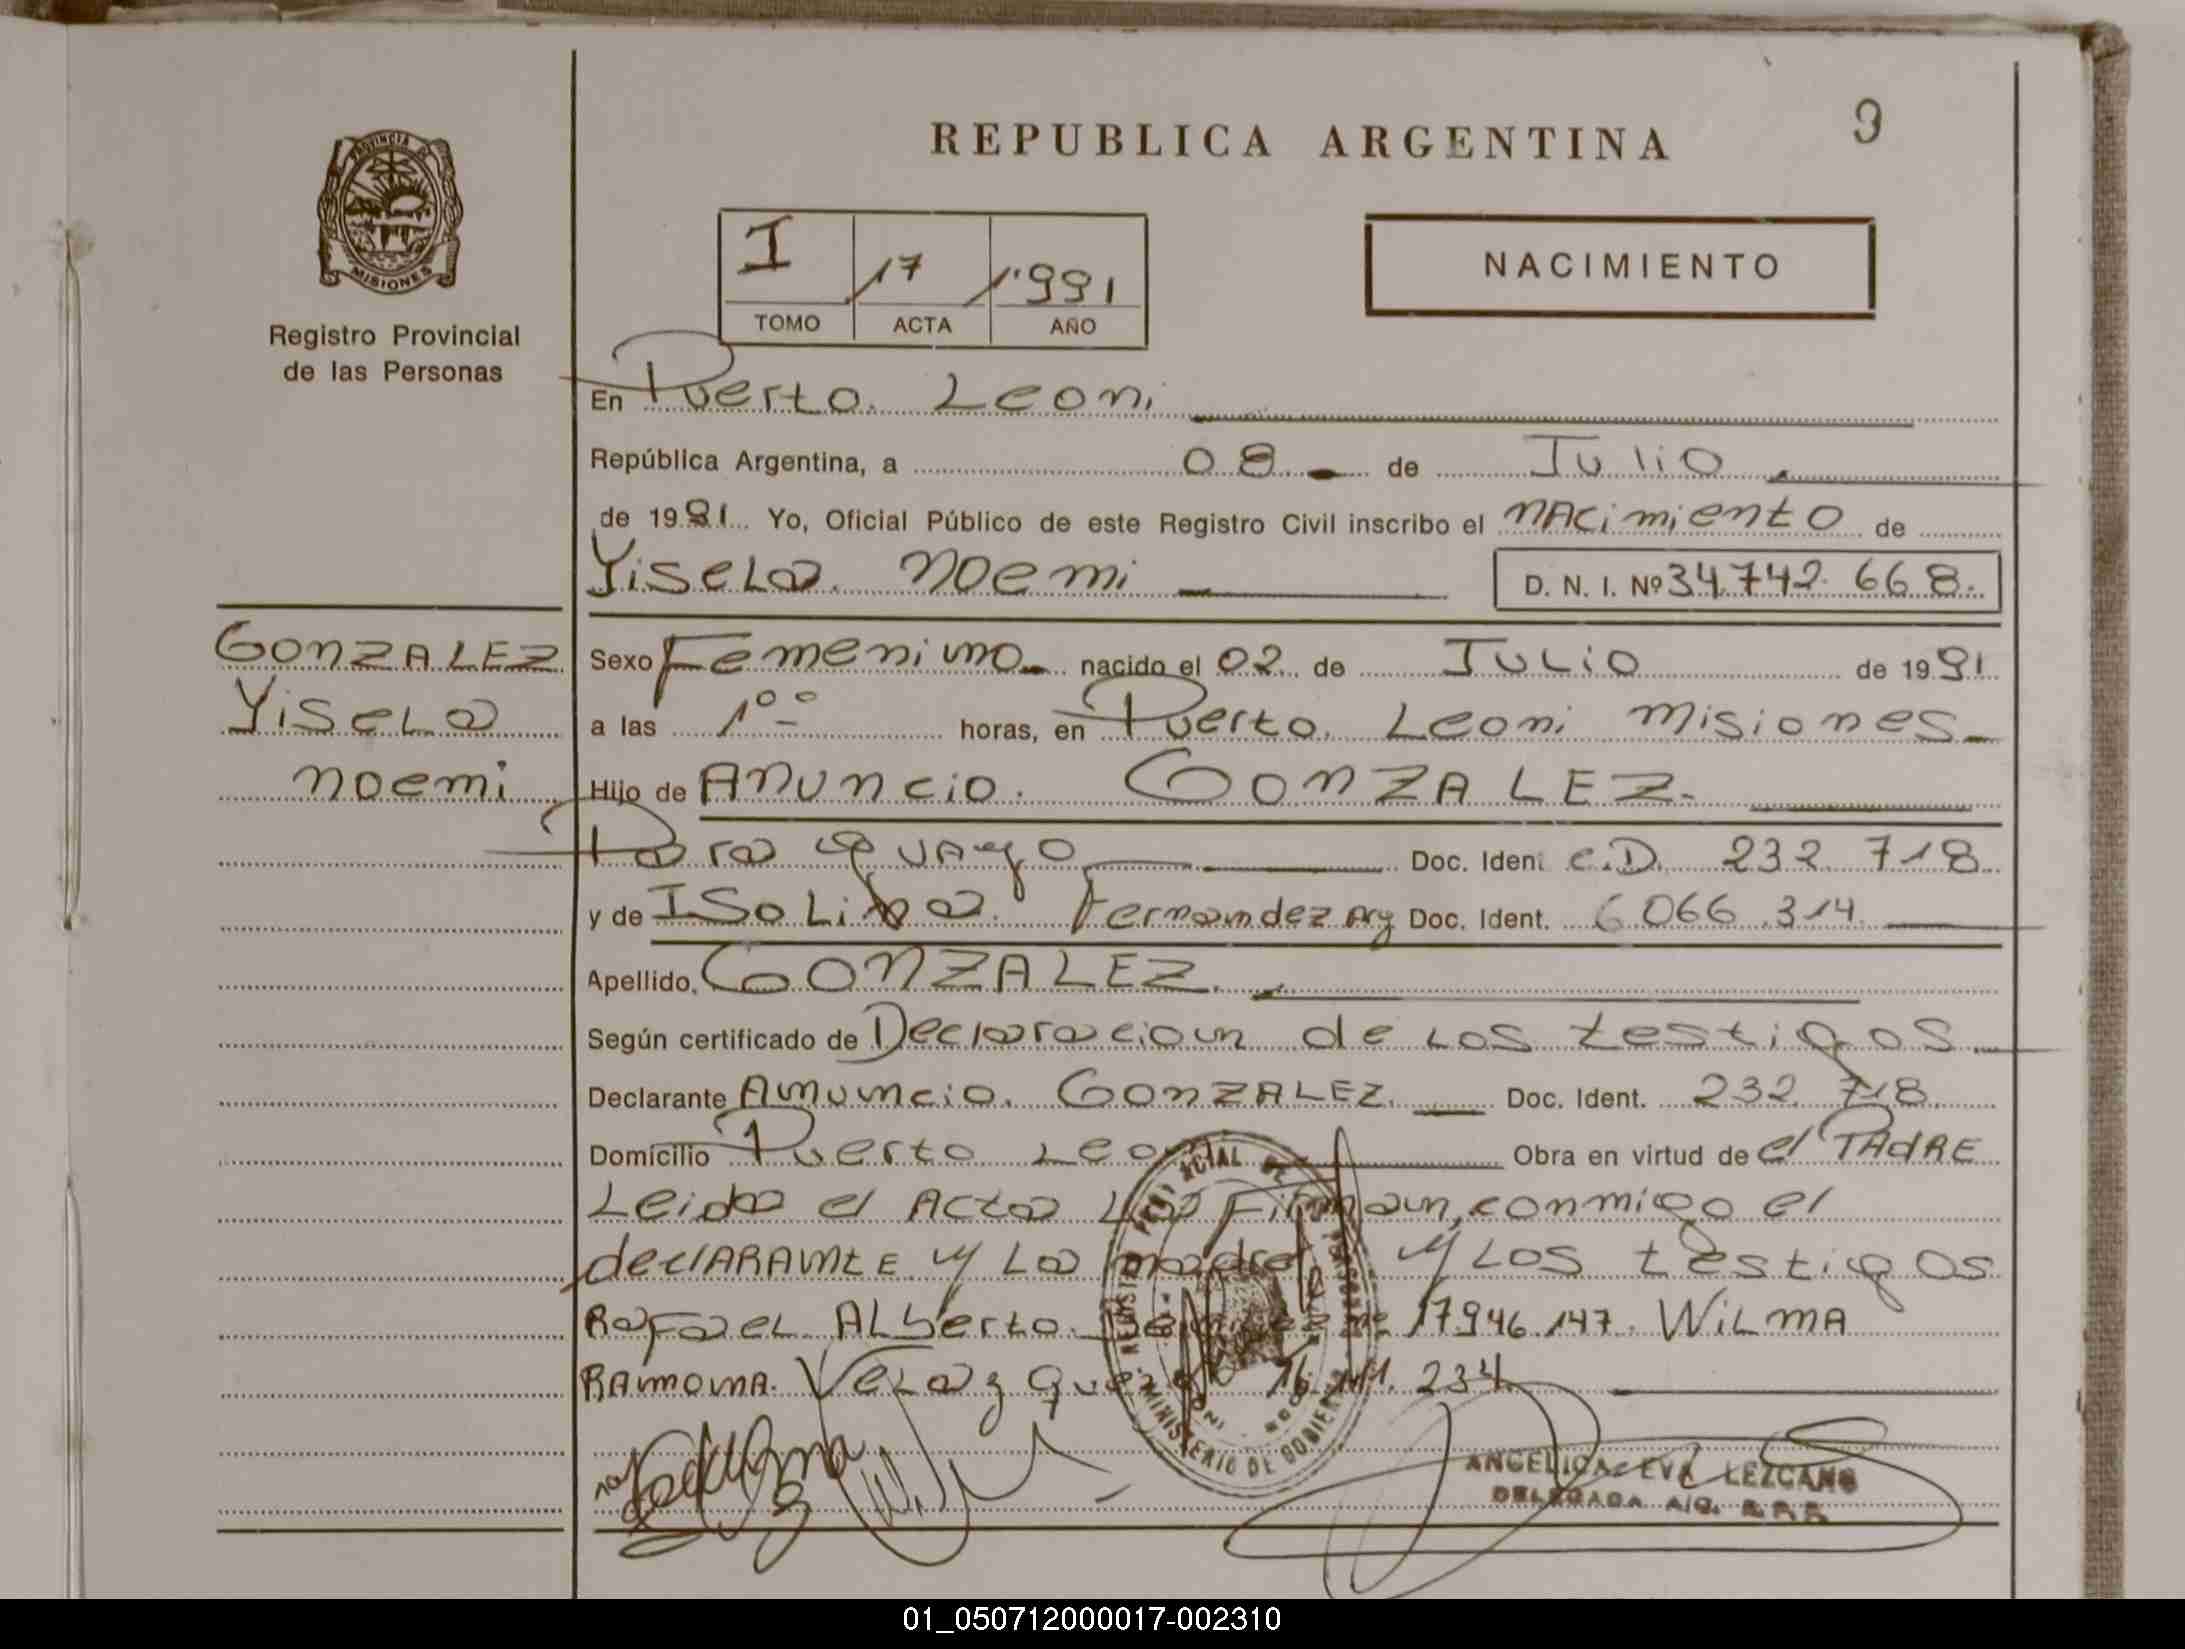 REPUBLICA ARGENTINA
9
PROVINCIA DE
MISIONES
Registro Provincial
de las Personas
I 17 1991
TOMO ACTA AÑO
NACIMIENTO
En Puerto Leoni
República Argentina, a 08 de Julio
de 1991 Yo, Oficial Público de este Registro Civil inscribo el nacimiento de
Yisela Noemi D. N. I. Nº 34.742.668.
GONZALEZ
Yisela
Noemi
Sexo Femenino nacido el 02 de Julio de 1991
a las 1°° horas, en Puerto Leoni Misiones
Hijo de Anuncio GONZALEZ.
Paraguayo Doc. Iden. C.D. 232 718
y de Isolina Fernandez Arg Doc. Ident. 6 066 314
Apellido, GONZALEZ.
Según certificado de Declaracion de los testigos
Declarante Anuncio. GONZALEZ. Doc. Ident. 232 718
Domicilio Puerto Leoni Obra en virtud de el PAdRE
Leida el Acta La Firman, conmigo el
declARAntE y La madre y Los testigos
Rafael Alberto 17946.147. WiLmA
RAmonA. Velazquez 16 234
MINISTERIO DE GOBIERNO
ANGELICA EVA LEZCANO
DELEGADA A/C. R.P.P.
01_050712000017-002310